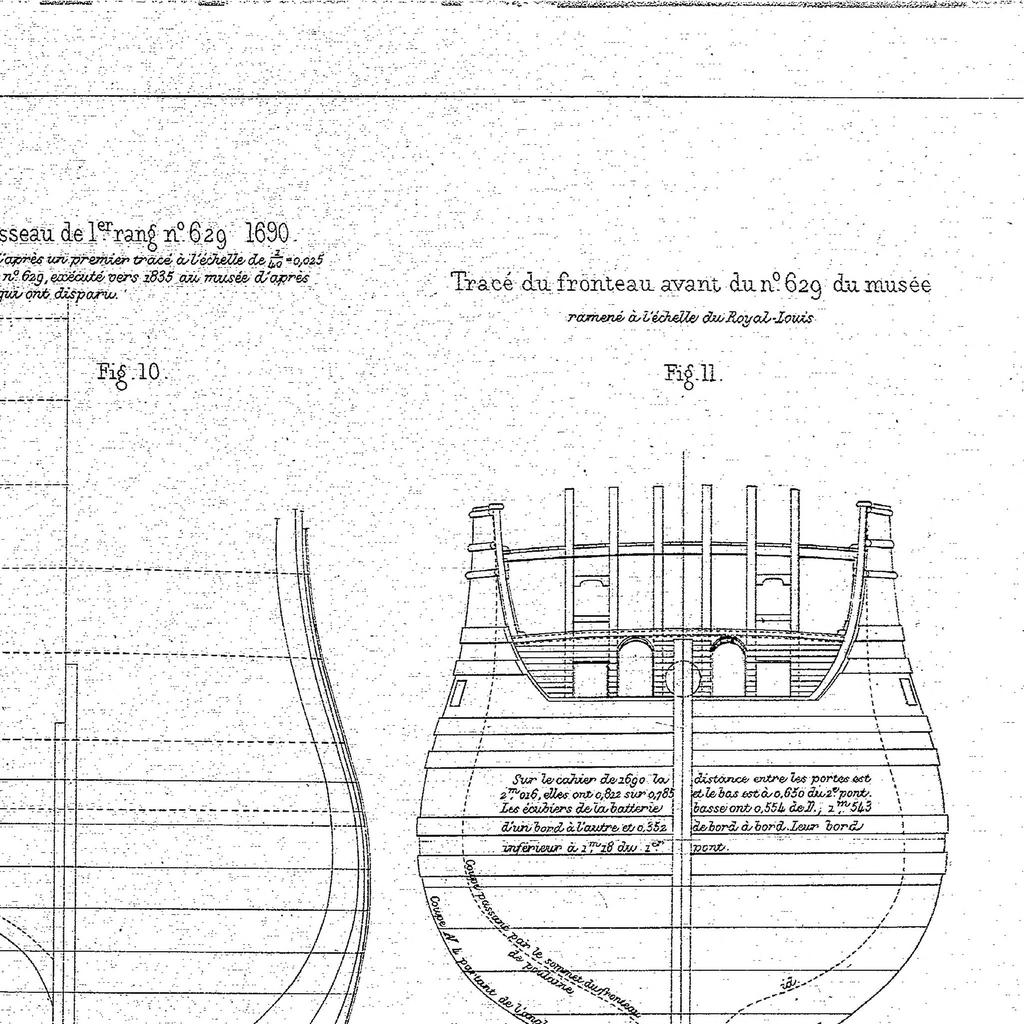 sseau de 1er rang nº 629 1690.
l'après un premier tracé à l'échelle de 1/40=0,025
nº 629, exécuté vers 1835 au musée d'après
qui ont disparu.
Fig. 10.
Tracé du fronteau avant du nº 629 du musée
ramené à l'échelle du Royal-Louis
Fig. 11.
Sur le cahier de 1690 la distance entre les portes est
2m 016, elles ont 0,812 sur 0,785 et le bas est à 0,650 du 2e pont.
Les écubiers de la batterie basse ont 0,554 de D., 1m 543
d'un bord à l'autre et 0,352 de bord à bord. Leur bord
inférieur à 1m 18 du 1er pont.
Coupe passant par le sommet du fronteau
de poulaine
Coupe Nº 4 partant de l'angl
id.